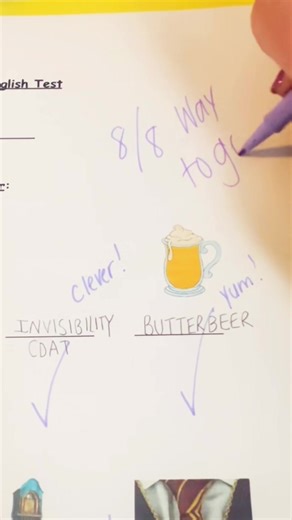 glish Test
8/8 Way
to go
clever!
yum!
INVISIBILITY
COAT
BUTTERBEER